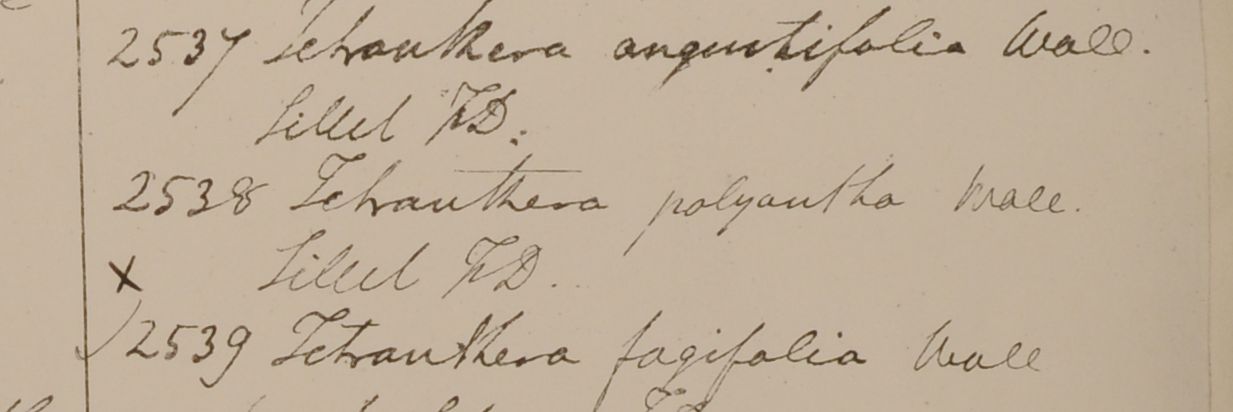 2537 Tetranthera angustifolia Wall.
Sillet FD.
2538 Tetranthera polyantha Wall.
x Sillet FD.
2539 Tetranthera fagifolia Wall